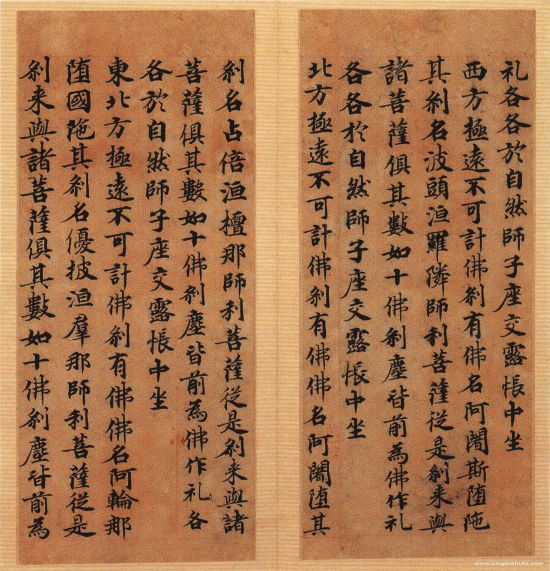 礼各各於自然師子座交露帳中坐
西方極遠不可計佛刹有佛名阿闍斯堕陁
其刹名波頭洹羅隣師利菩薩從是刹来與
諸菩薩俱其數如十佛刹塵皆前為佛作礼
各各於自然師子座交露帳中坐
北方極遠不可計佛刹有佛佛名阿闍堕其
刹名占倍洹檀那師利菩薩從是刹来與諸
菩薩俱其數如十佛刹塵皆前為佛作礼各
各於自然師子座交露帳中坐
東北方極遠不可計佛刹有佛佛名阿輪那
堕國陁其刹名優披洹羣那師利菩薩從是
刹来與諸菩薩俱其數如十佛刹塵皆前為
www.yingbishufa.com